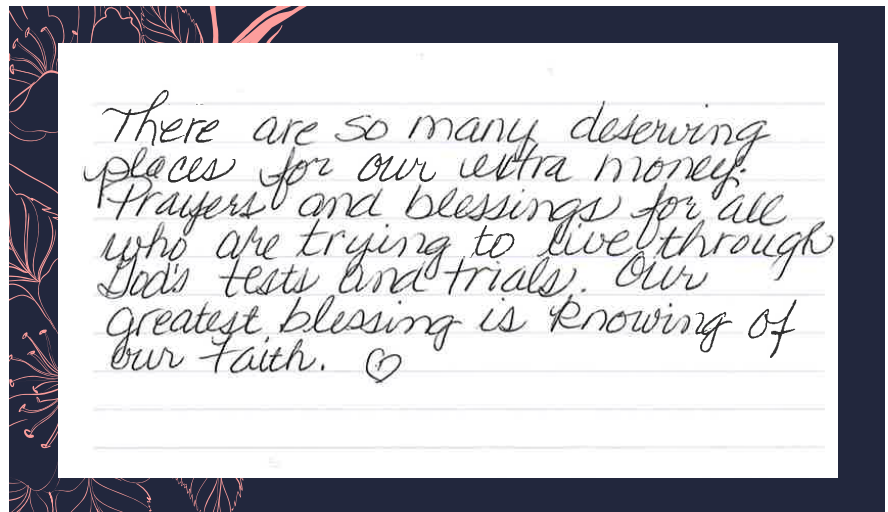 There are so many deserving
places for our extra money.
Prayers and blessings for all
who are trying to live through
God's tests and trials. Our
greatest blessing is knowing of
our faith. ♡